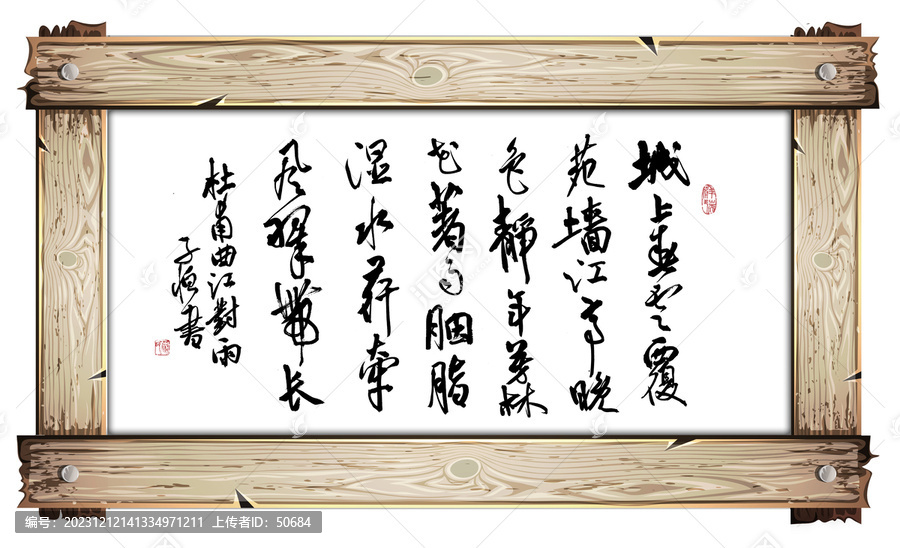 城上春云覆
苑墙江亭晚
色静年芳林
花著雨胭脂
湿水荇牵
风翠带长
杜甫曲江對雨
子書
编号：20231212141334971211 上传者ID：50684